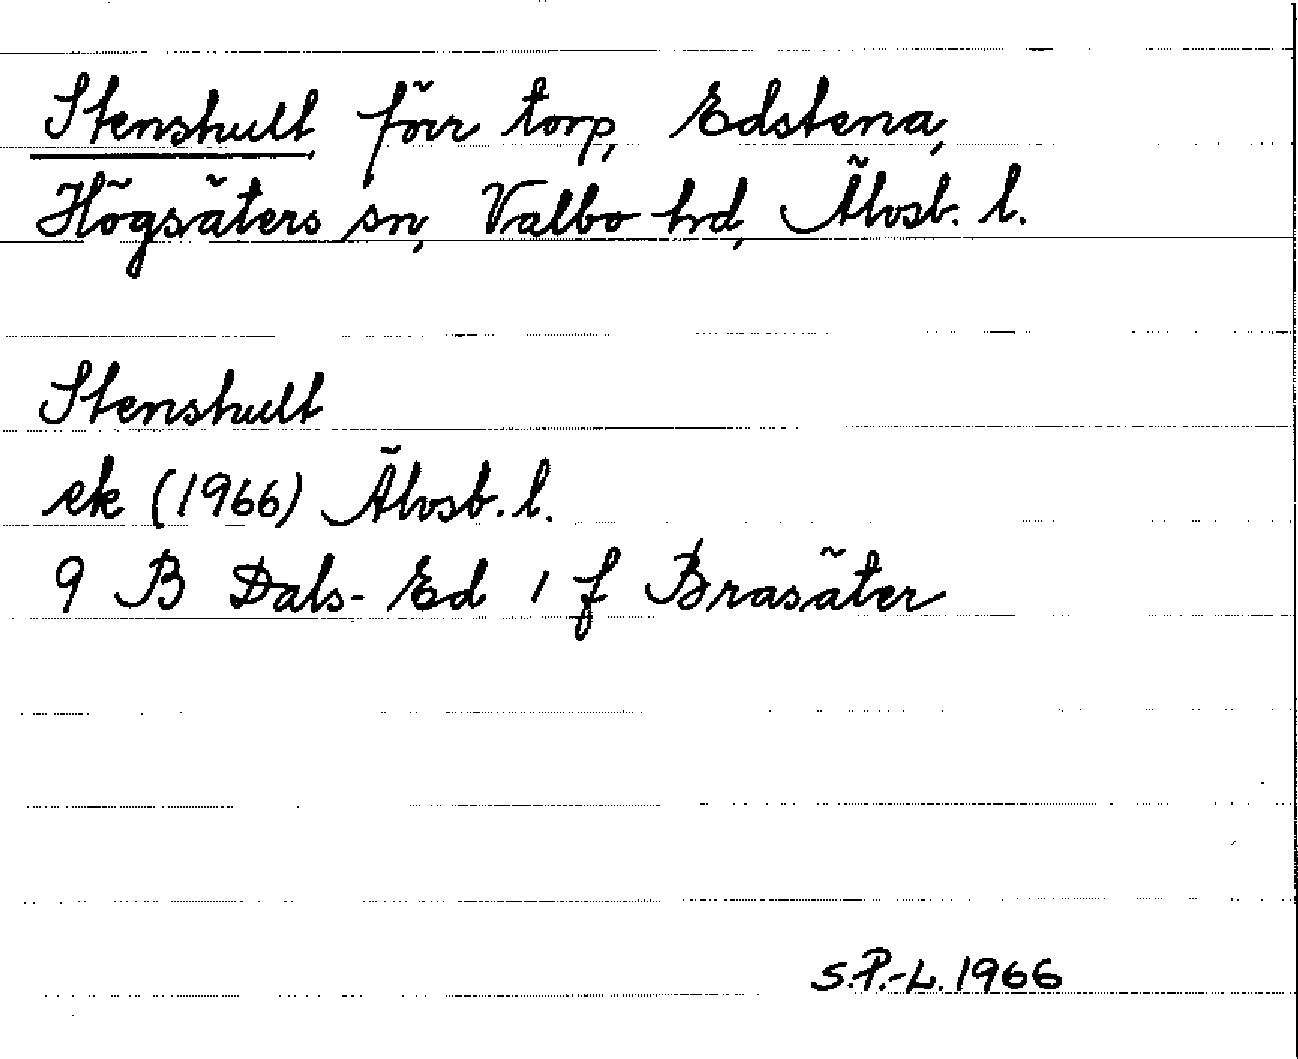 Stenshult förr torp, Edstena,
Högsäters sn, Valbo hd, Älvsb. l.
Stenshult
ek (1966) Älvsb. l.
9 B Dals-Ed 1 f Brasäter
S.P.-L. 1966